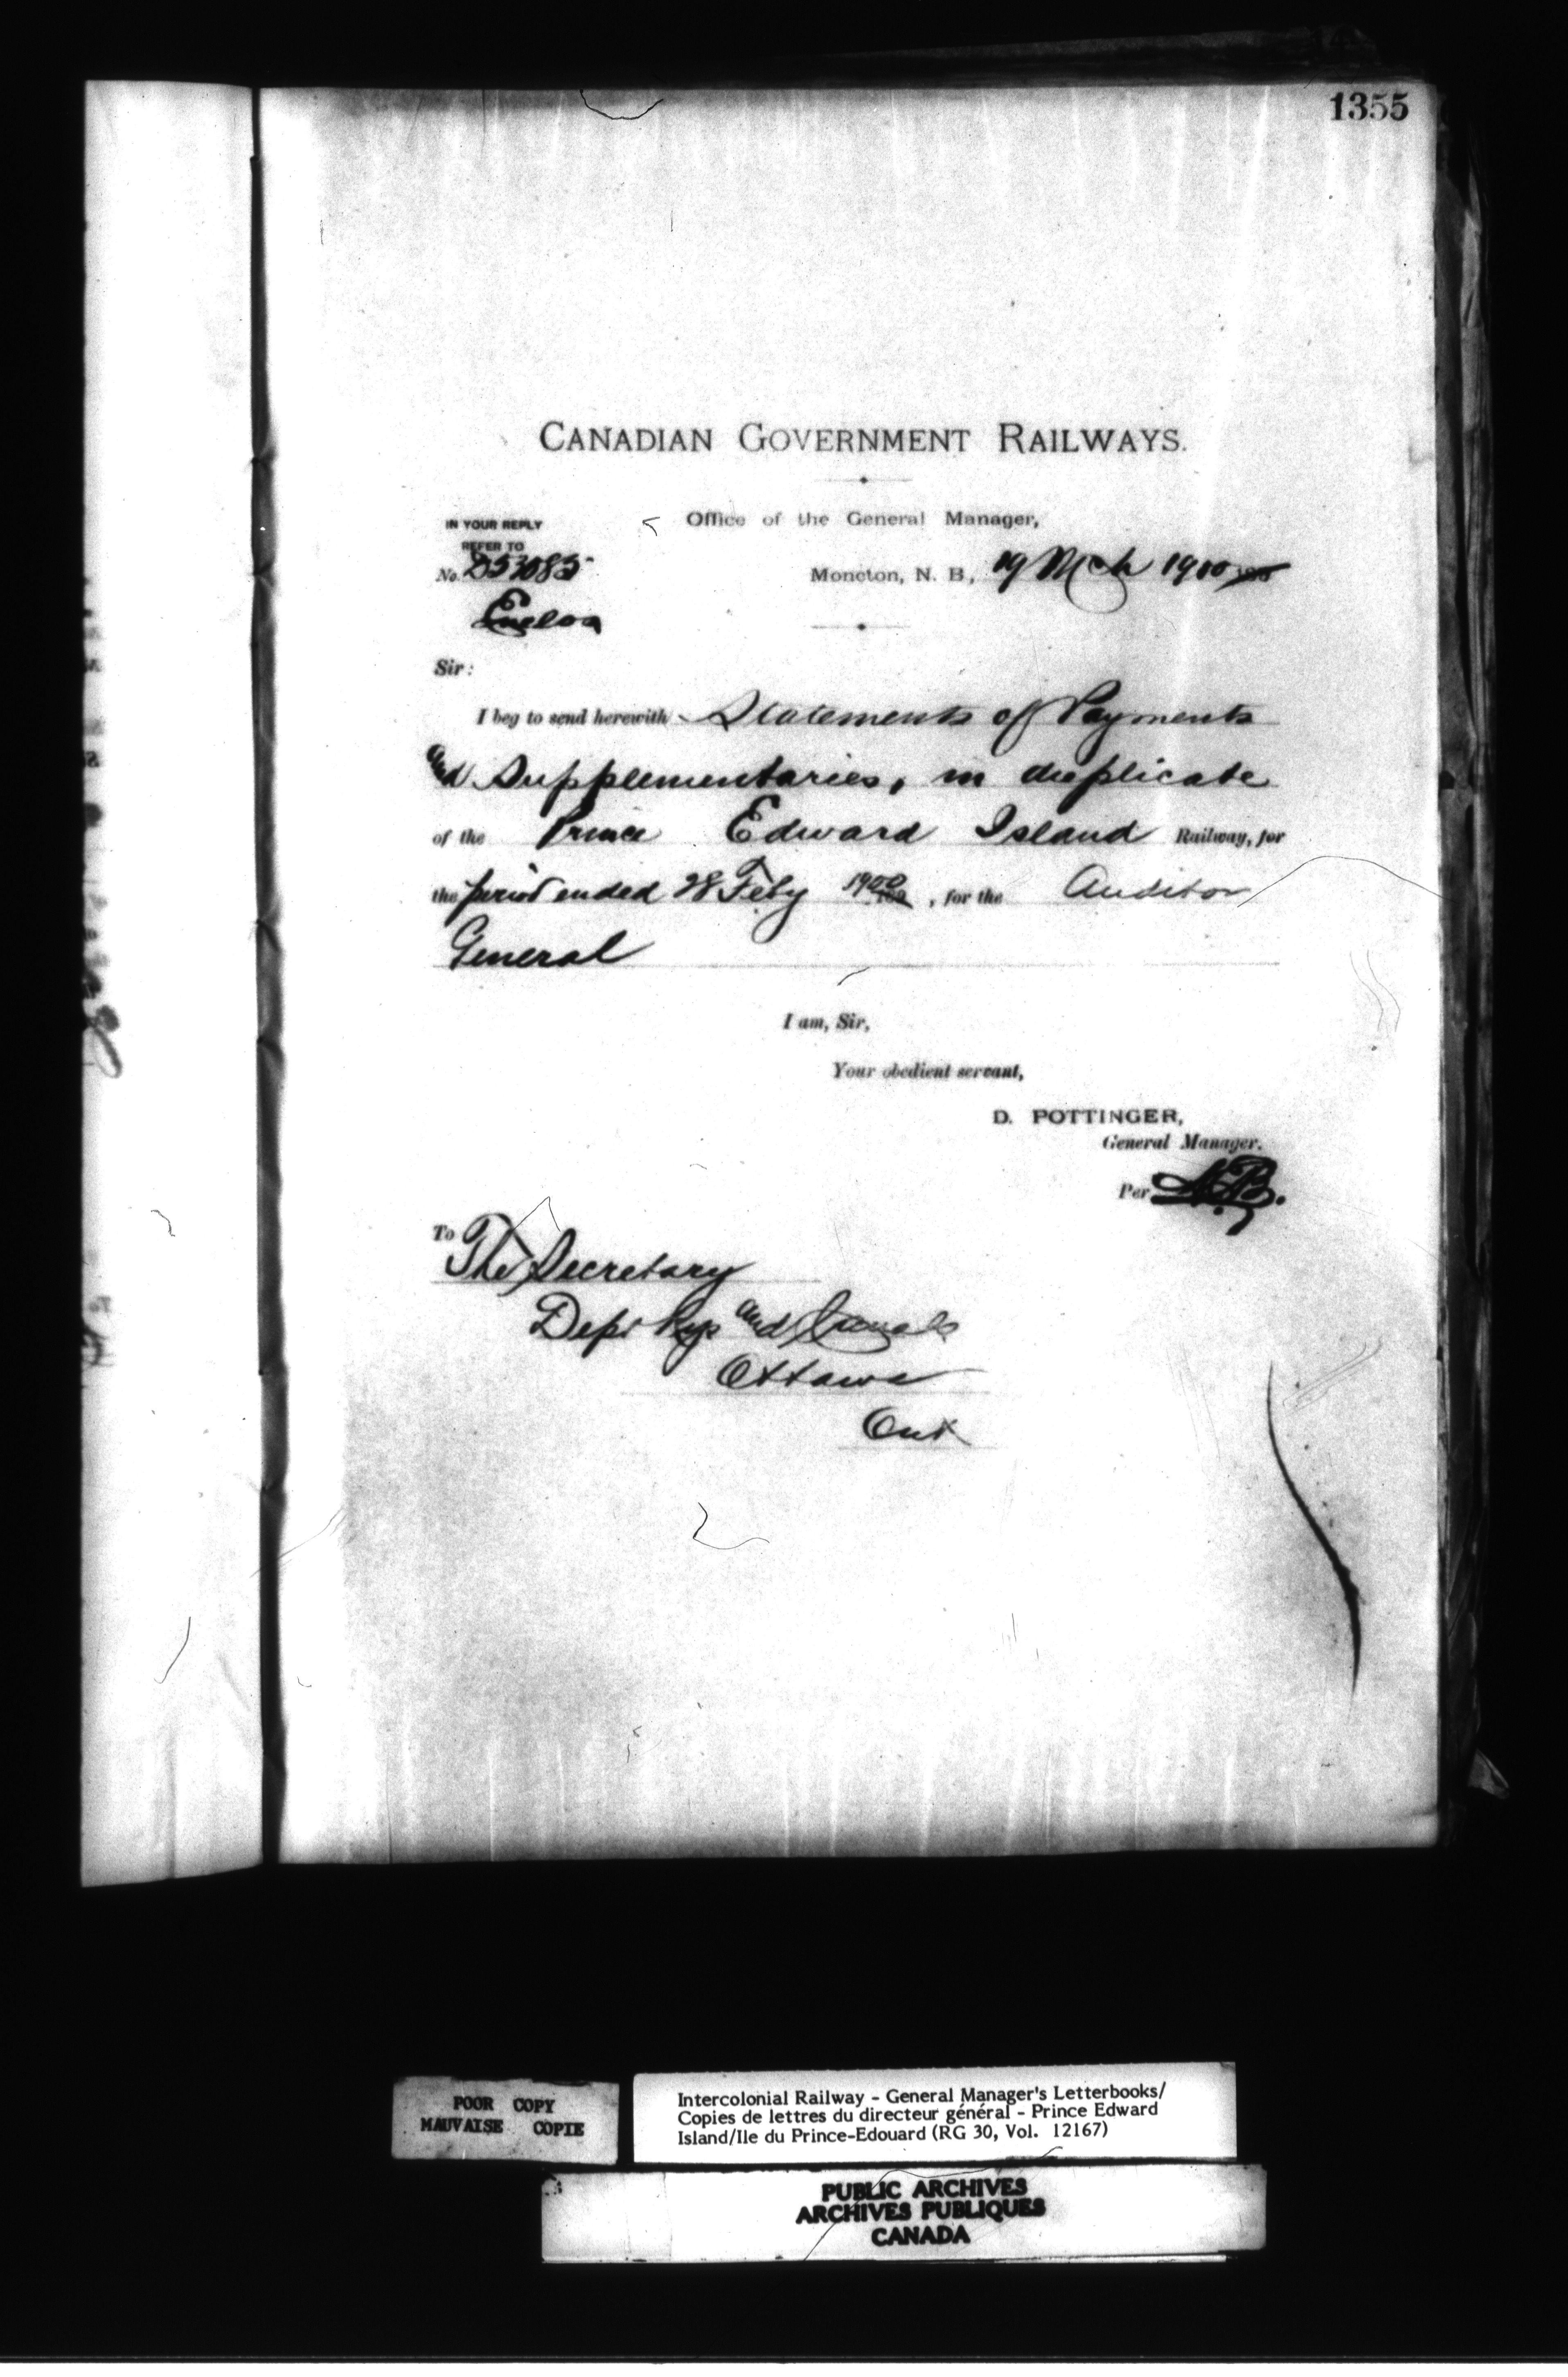 1355
CANADIAN GOVERNMENT RAILWAYS.
IN YOUR REPLY
REFER TO
Office of the General Manager,
No. 253085
Moncton, N. B., 19 Mch 1900
Enclos
Sir:
I beg to send herewith Statements of Payments
and Supplementaries, in duplicate
of the Prince Edward Island Railway, for
the period ended 28 Feby 1900, for the Auditor
General
I am, Sir,
Your obedient servant,
D. POTTINGER,
General Manager.
Per
To
The Secretary
Dept Rys and Canals
Ottawa
Ont
POOR COPY
MAUVAISE COPIE
Intercolonial Railway - General Manager's Letterbooks/
Copies de lettres du directeur général - Prince Edward
Island/Ile du Prince-Edouard (RG 30, Vol. 12167)
PUBLIC ARCHIVES
ARCHIVES PUBLIQUES
CANADA